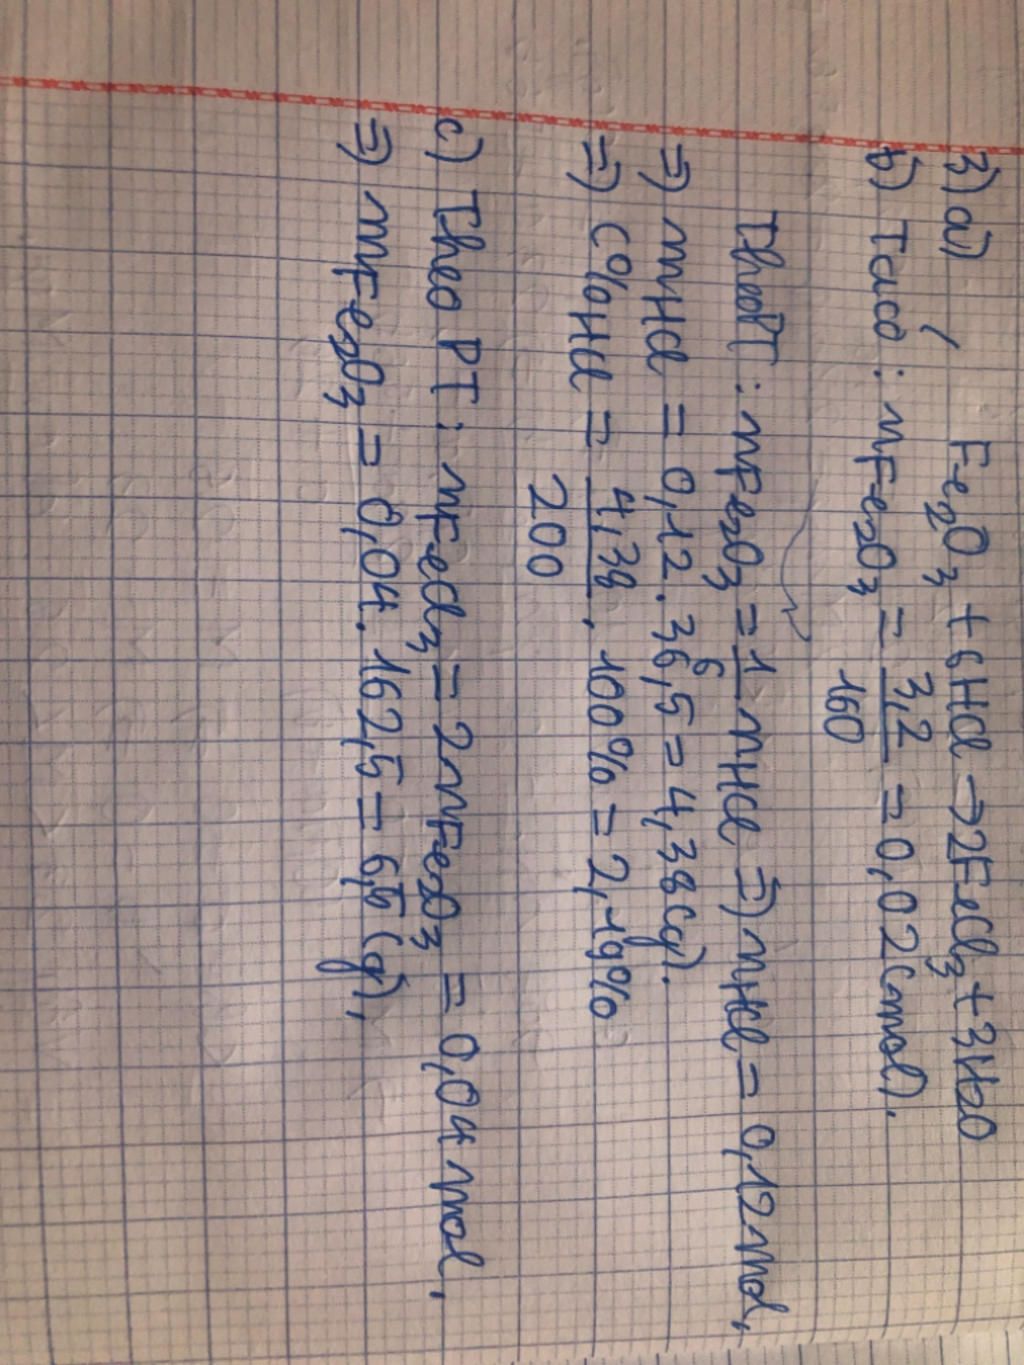 3) a) Fe₂O₃ + 6HCl → 2FeCl₃ + 3H₂O
b) Ta có : nFe₂O₃ = 3,2/160 = 0,02 (mol).
Theo PT : nFe₂O₃ = 1/6 nHCl ⇒ nHCl = 0,12 mol,
⇒ mHCl = 0,12 . 36,5 = 4,38 (g).
⇒ C%HCl = 4,38/200 . 100% = 2,19%
c) Theo PT : nFeCl₃ = 2nFe₂O₃ = 0,04 mol,
⇒ mFe₂O₃ = 0,04 . 162,5 = 6,5 (g),